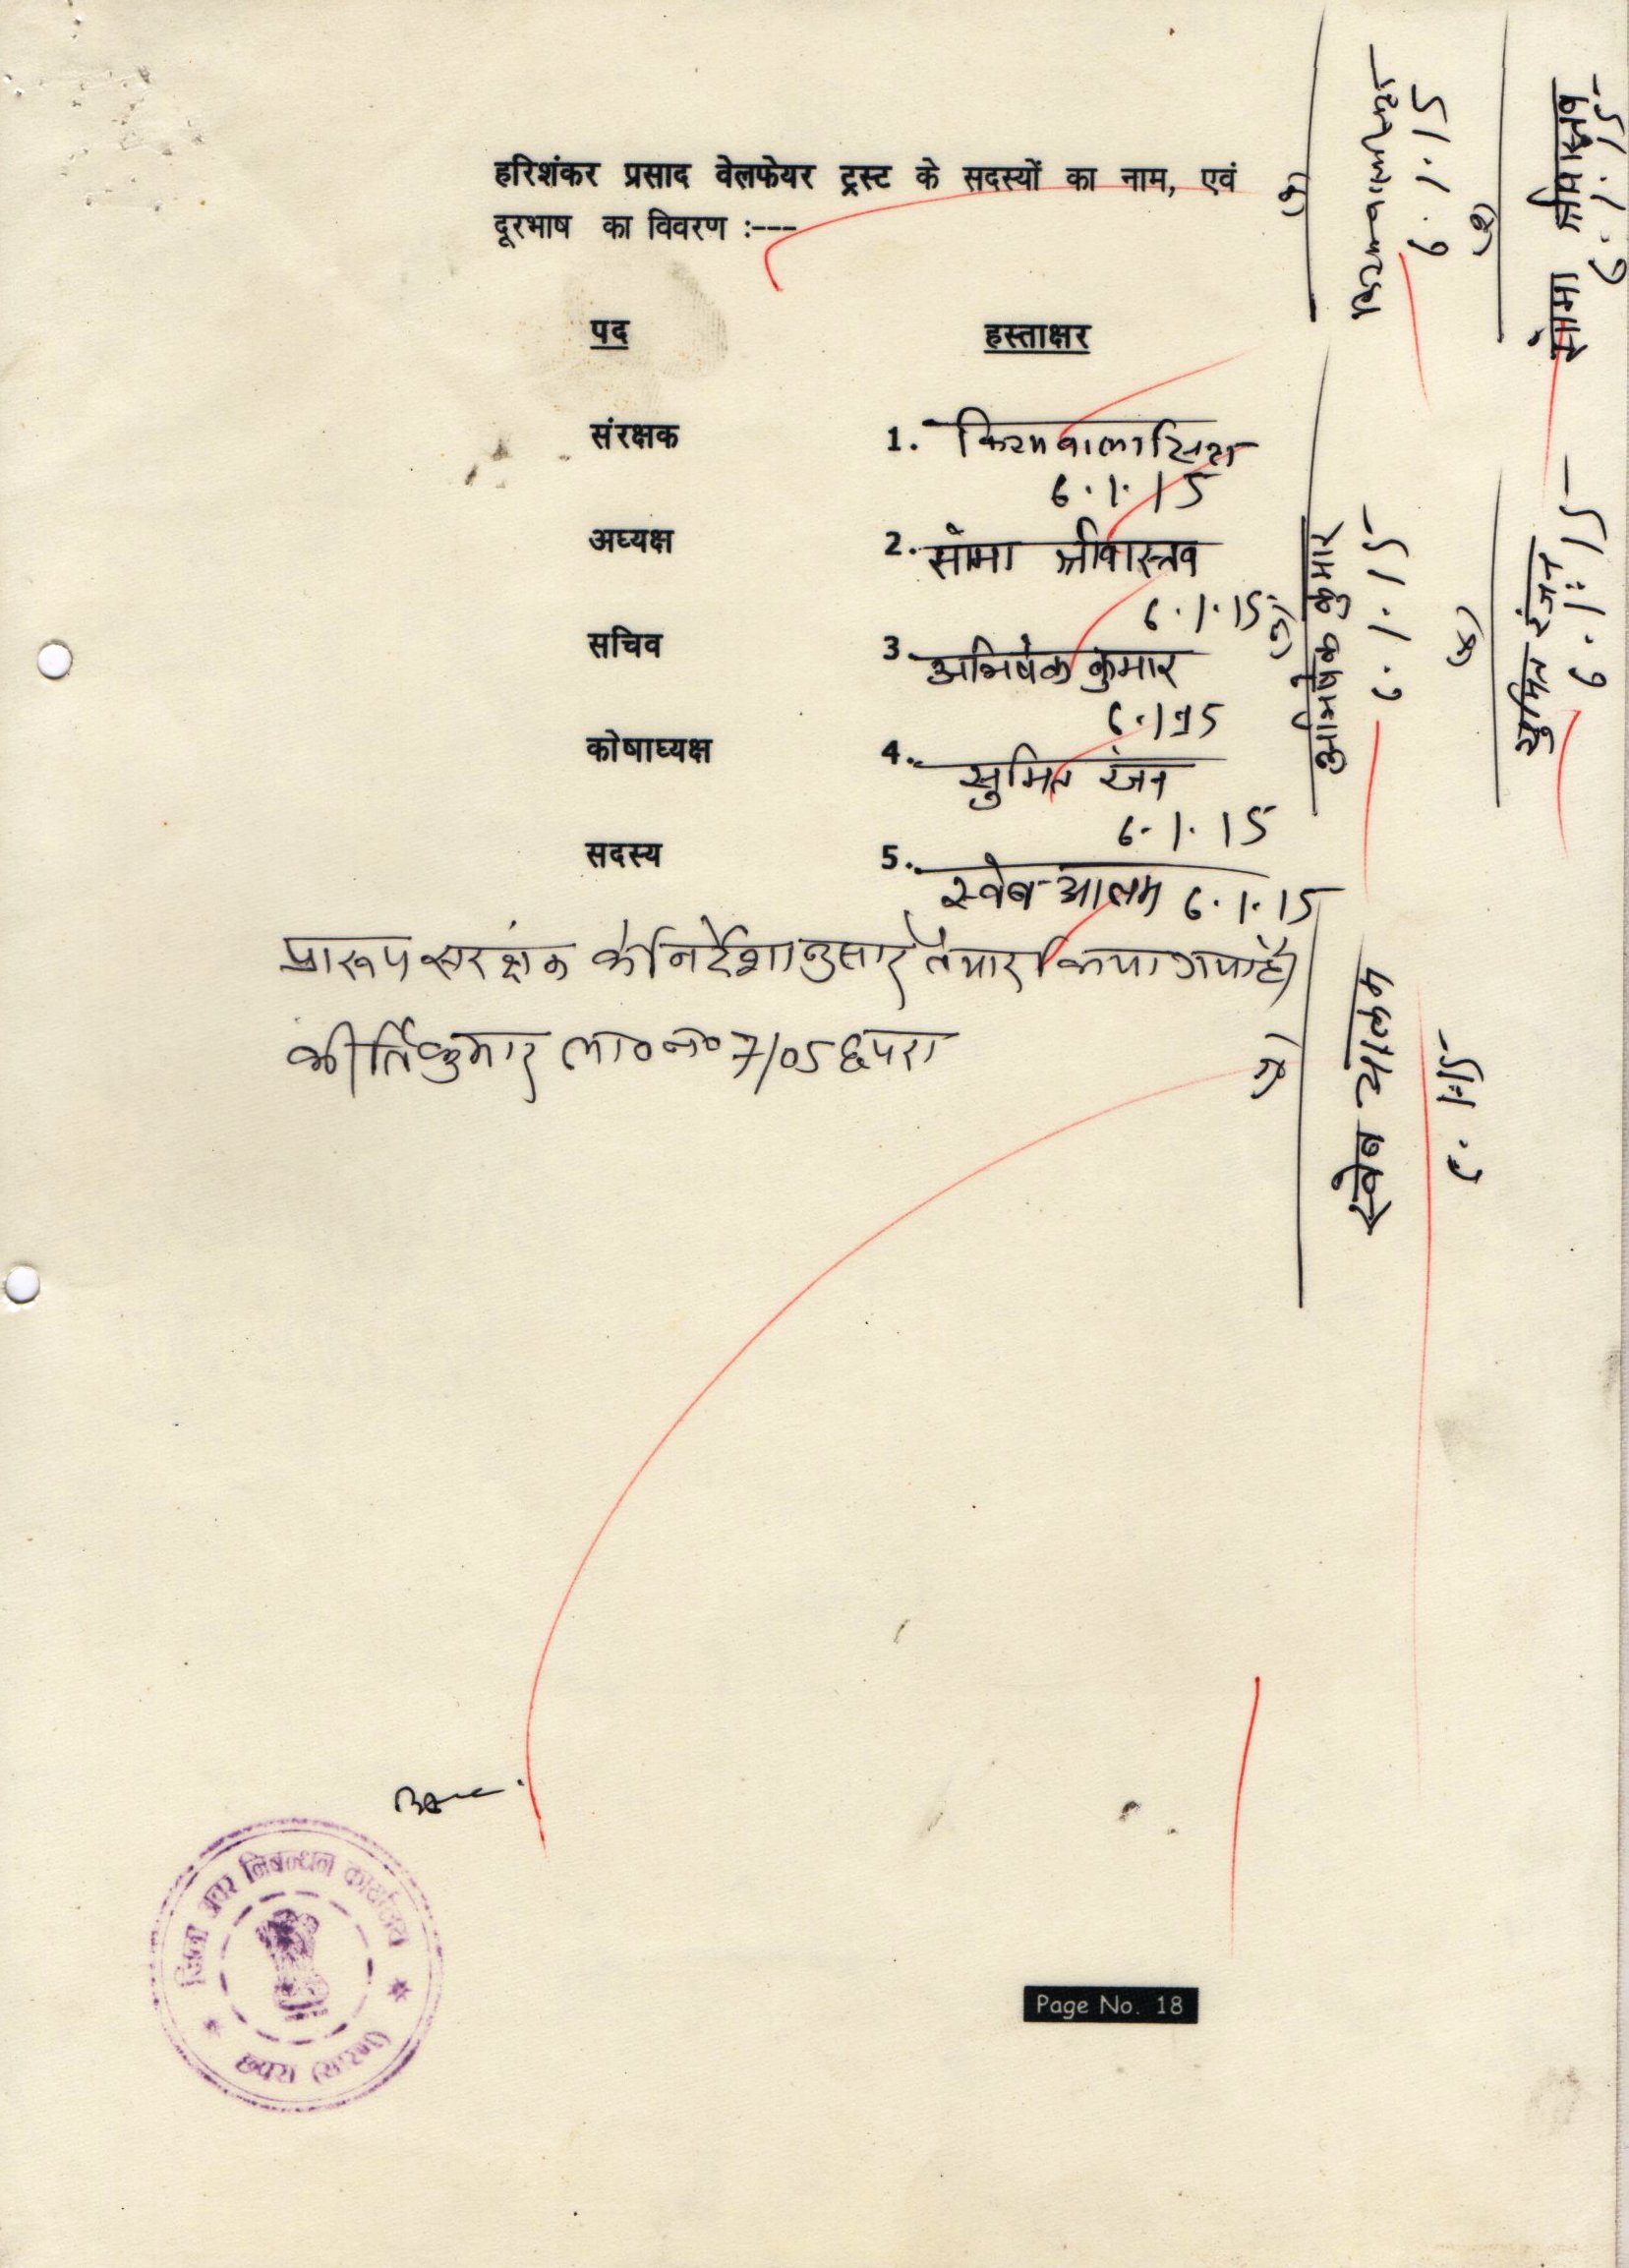 हरिशंकर प्रसाद वेलफेयर ट्रस्ट के सदस्यों का नाम, एवं
दूरभाष का विवरण :---
पद हस्ताक्षर
संरक्षक 1. किरण बाला सिन्हा
6.1.15
अघ्यक्ष 2. सोमा श्रीवास्तव
6.1.15
सचिव 3. अभिषेक कुमार
6.1.15
कोषाघ्यक्ष 4. सुमित रंजन
6.1.15
सदस्य 5. स्वेब आलम 6.1.15
प्रारूप संरक्षक के निर्देशानुसार तैयार किया गया है
कीर्ति कुमार ला० न० 7/05 छपरा
किरण बाला सिन्हा
6.1.15
सोमा श्रीवास्तव
6.1.15
अभिषेक कुमार
6.1.15
सुमित रंजन
6.1.15
स्वेब आलम
6.1.15
जिला अवर निबन्धन कार्यालय
छपरा (सारण)
Page No. 18